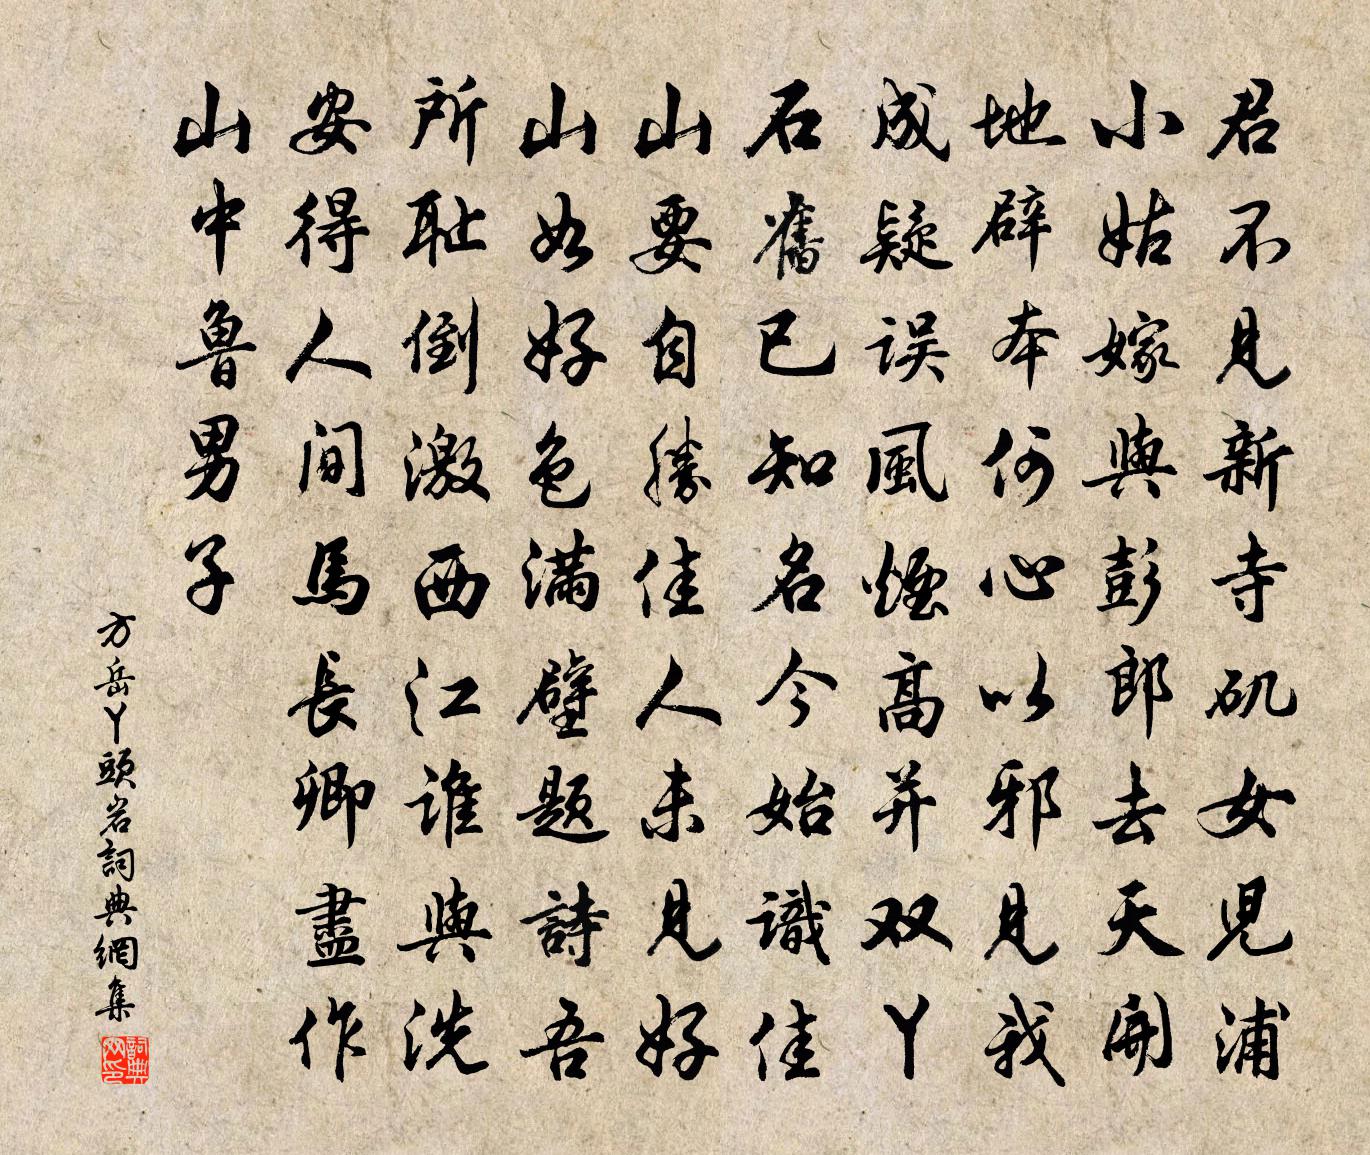 君不見新寺矶女兒浦
小姑嫁與彭郎去天開
地辟本何心以邪見我
成疑误風煙高并双丫
石舊已知名今始識佳
山要自勝佳人未見好
山如好色滿壁题詩吾
所耻倒激西江谁與洗
安得人間馬長卿盡作
山中魯男子
方岳丫頭岩詞典網集
詞典网印